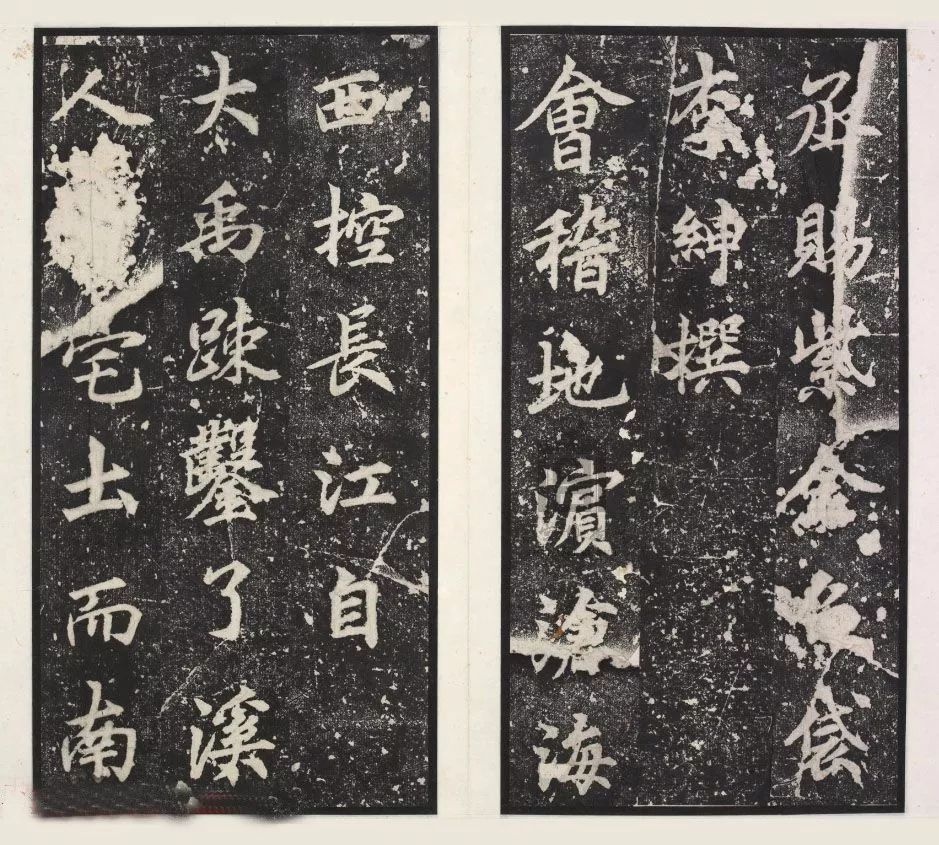 丞賜紫金袋
李紳撰
會稽地濵滄海
西控長江自
大禹踈鑿了溪
人宅土而南